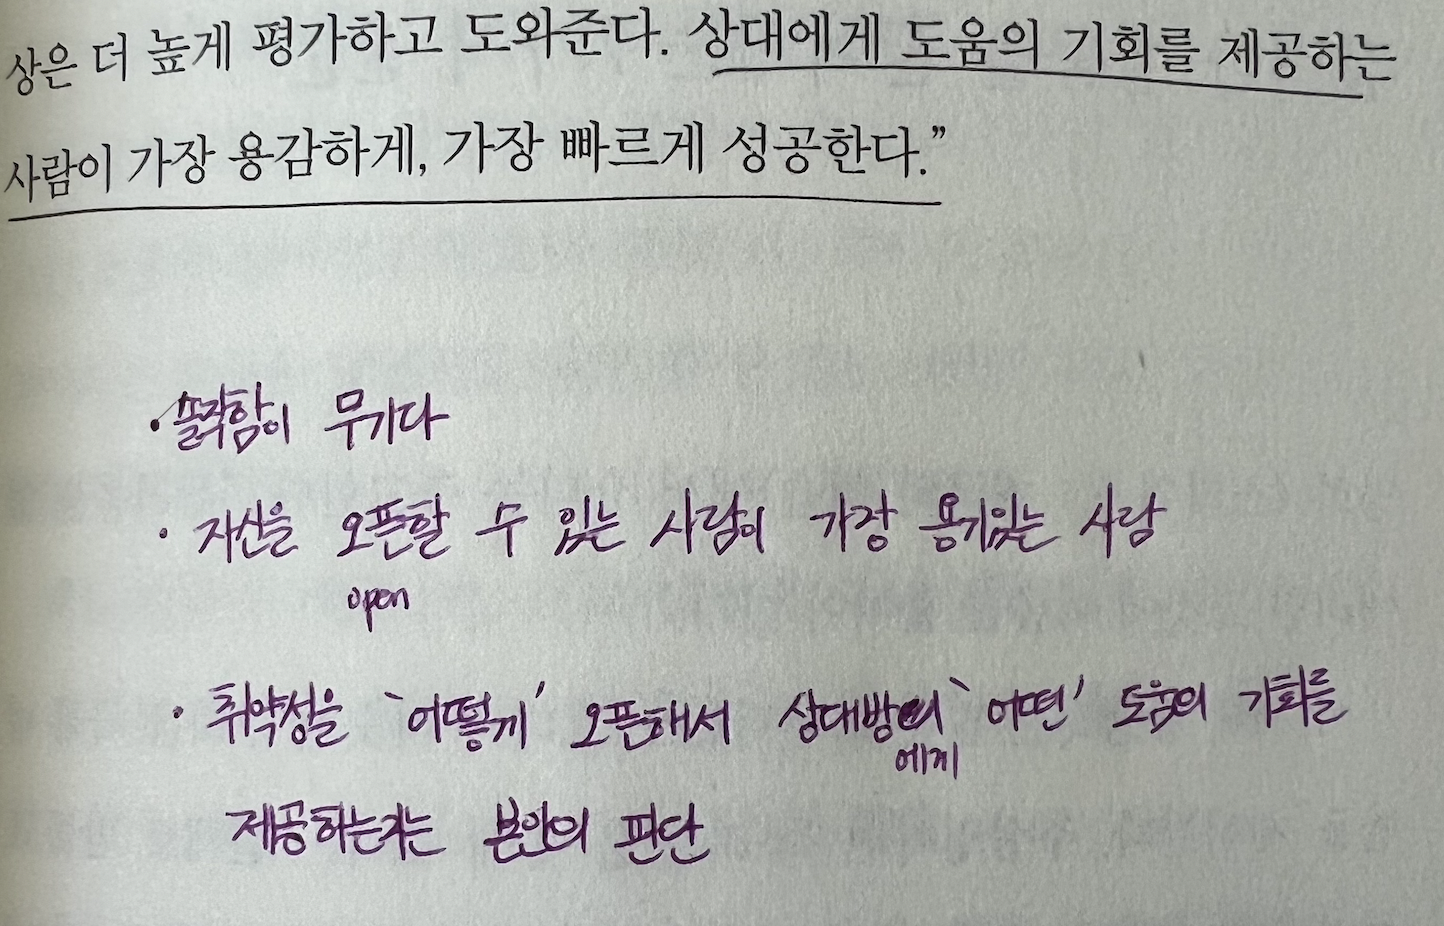 상은 더 높게 평가하고 도와준다. 상대에게 도움의 기회를 제공하는
사람이 가장 용감하게, 가장 빠르게 성공한다.”
· 솔직함이 무기다
· 자신을 오픈할 수 있는 사람이 가장 용기있는 사람
open
· 취약성을 ‘어떻게’ 오픈해서 상대방 ‘어떤’ 도움의 기회를
에게
제공하는가는 본인의 판단